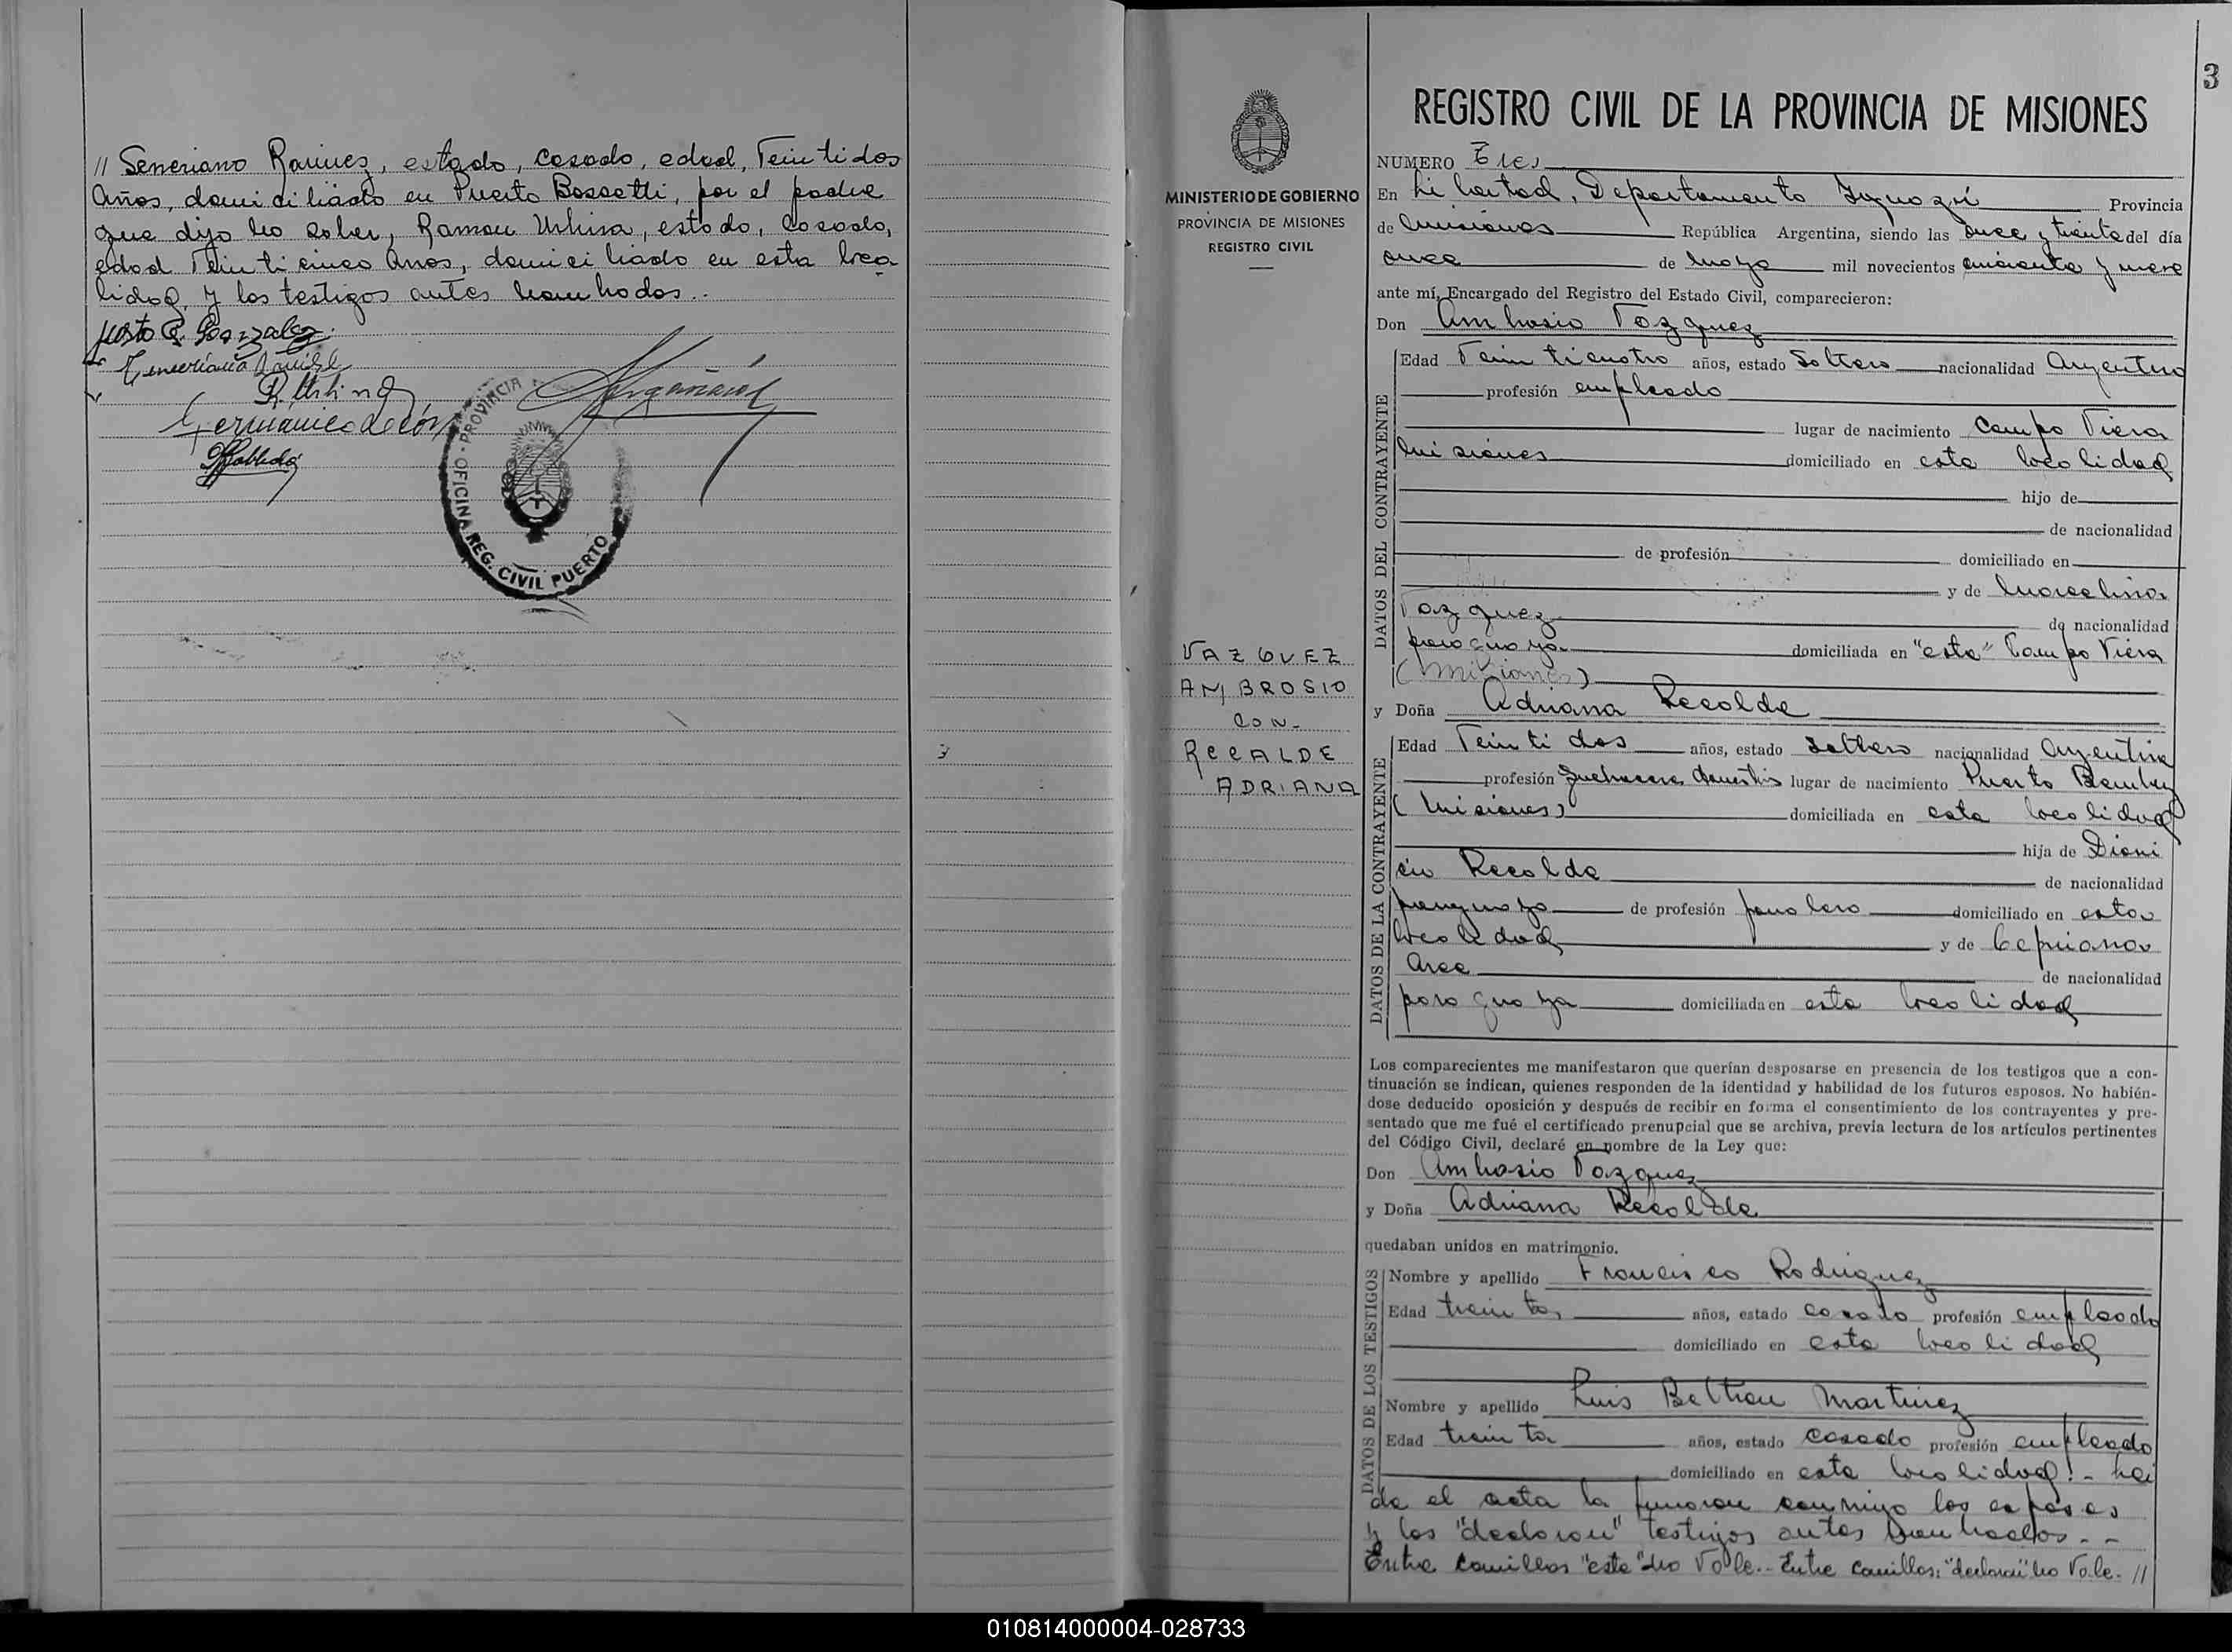 // Seneriano Ramires, estado, casado, edad, Veintidos
Años, domiciliado en Puerto Bossetti, por el padre
que dijo no saber, Ramon Urbina, estado, casado,
edad Veinticinco Años, domiciliado en esta loca
lidad, y los testigos antes nombrados..
Justo R. Gonzalez.
R. Urbina
Germanico de León
PROVINCIA
OFICINA REG. CIVIL PUERTO
3
MINISTERIO DE GOBIERNO
PROVINCIA DE MISIONES
REGISTRO CIVIL
VAZQUEZ
AMBROSIO
CON-
RECALDE
ADRIANA
3
REGISTRO CIVIL DE LA PROVINCIA DE MISIONES
NUMERO Tres
En Libertad, Departamento Iguazú Provincia
de Misiones República Argentina, siendo las Once y treinta del día
once de Mayo mil novecientos cincuenta y nueve
ante mí, Encargado del Registro del Estado Civil, comparecieron:
Don Ambrosio Vazquez
DATOS DEL CONTRAYENTE
Edad Veinticuatro años, estado Soltero nacionalidad Argentino
profesión empleado
lugar de nacimiento Campo Viera
Misiones domiciliado en esta localidad
hijo de
de nacionalidad
de profesión domiciliado en
y de Marcelina
Vazquez de nacionalidad
paraguaya domiciliada en "esta" Campo Viera
(Misiones)
y Doña Adriana Recalde
DATOS DE LA CONTRAYENTE
Edad Veintidos años, estado Soltera nacionalidad Argentina
profesión Quehaceres domestic lugar de nacimiento Puerto Bemberg
(Misiones) domiciliada en esta localidad
hija de Dioni
cio Recalde de nacionalidad
paraguayo de profesión jornalero domiciliado en esta
localidad y de Cepriana
Arce de nacionalidad
paraguaya domiciliada en esta localidad
Los comparecientes me manifestaron que querían desposarse en presencia de los testigos que a con-
tinuación se indican, quienes responden de la identidad y habilidad de los futuros esposos. No habién-
dose deducido oposición y después de recibir en forma el consentimiento de los contrayentes y pre-
sentado que me fué el certificado prenupcial que se archiva, previa lectura de los artículos pertinentes
del Código Civil, declaré en nombre de la Ley que:
Don Ambrosio Vazquez
y Doña Adriana Recalde
quedaban unidos en matrimonio.
DATOS DE LOS TESTIGOS
Nombre y apellido Francisco Rodriguez
Edad treinta años, estado casado profesión empleado
domiciliado en esta localidad
Nombre y apellido Luis Beltran Martinez
Edad treinta años, estado casado profesión empleado
domiciliado en esta localidad.- Lei
da el acta la firmaron conmigo los esposos
y los "declaran" testigos antes nombrados.--
Entre comillas "esta" no Vale.- Entre comillas: "declaran" no Vale. //
010814000004-028733